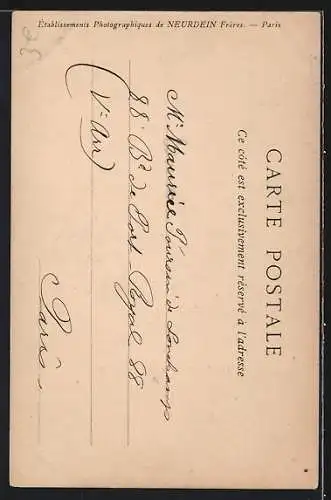 Établissements Photographiques de NEURDEIN Frères. — Paris
CARTE POSTALE
Ce côté est exclusivement réservé à l'adresse
Mr Maurice de Lonchamps
88 Bd de Port Royal 88
(Ve Arr)
Paris